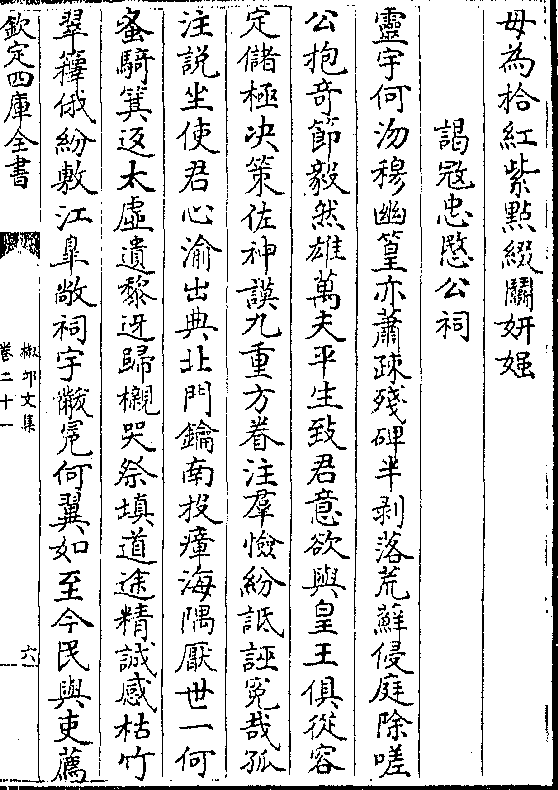 毋為拾紅紫點綴鬭妍嫫
謁冦忠愍公祠
靈宇何沕穆幽篁亦蕭疎殘碑半剥落荒蘚侵庭除嗟
公抱奇節毅然雄萬夫平生致君意欲與皇王俱從容
定儲極决策佐神謨九重方眷注羣憸紛詆誣寃哉孤
注説坐使君心渝出典北門鑰南投瘴海隅厭世一何
蚤騎箕返太虛遺黎迓歸櫬哭祭塡道途精誠感枯竹
翠籜俄紛敷江臯敞祠宇黻冕何翼如至今民與吏薦
欽定四庫全書
椒邱文集
卷二十一
六